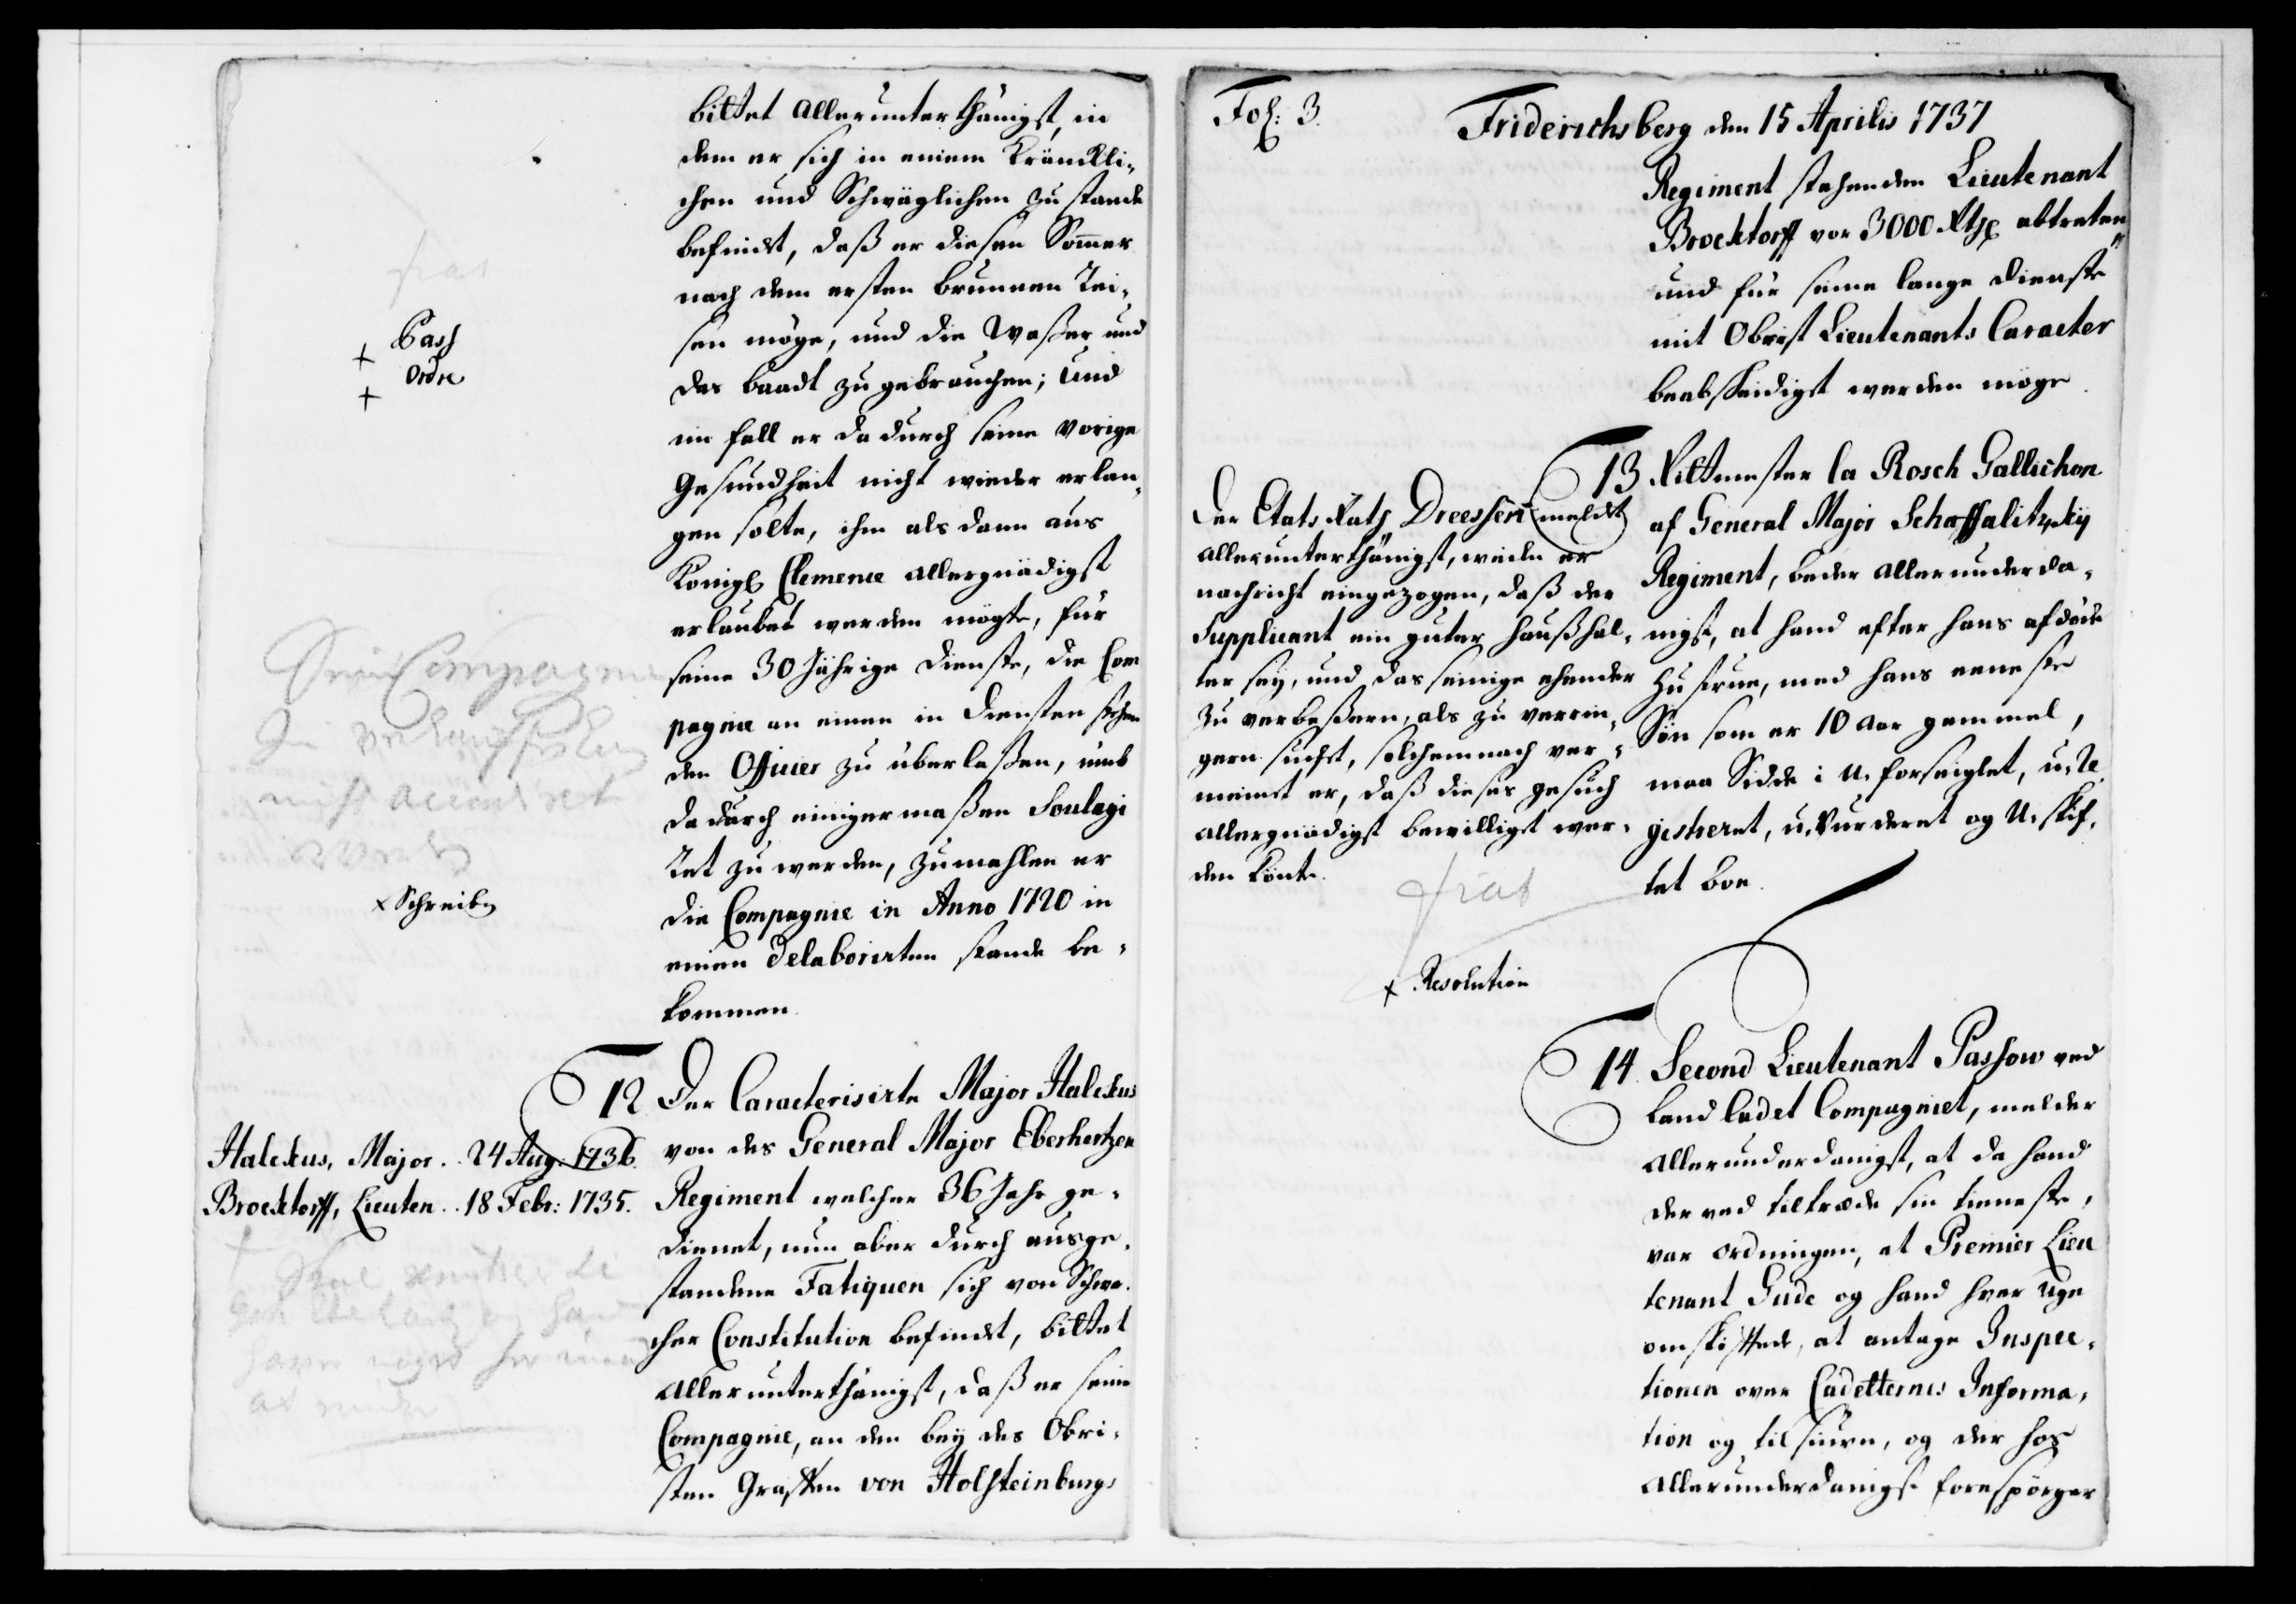 bittet allerunterthänigst, in
dem er sich in einem Kränckli¬
chen und Schwäglichen zustande
befindet, daß er diesen Sommer
nach dem ersten brunnen Rei¬
sen möge, und die Waßer und
das baadt zu gebrauchen; und
im fall er dadurch seine vorige
Gesundheit nicht wieder erlan¬
gen solte, ihm als dann aus
Königl Clemence allergnädigst
erlaubet werden mögte, für
seine 30 Jährige dienste, die Com
pagnie an einen in diensten stehen
den Officier zu überlaßen, umb
dadurch einigermaßen Soulagi
ret zu werden, zumahlen er
die Compagnie in Anno 1720 in
einen delaborirten stande be¬
kommen.
fiat
+ Pass
+ Ordre
Sein Compagnie
zu verkauffen
nicht accordiret
werden
x Schreiben
12 Der Caracterisirte Major Halckus
von des General Major Eberhertzen
Regiment welcher 36 Jahr ge¬
dienet, nun aber durch ausge¬
standene Fatiquen sich von Schwa¬
cher Constitution befindet, bittet
allerunterthänigst, daß er seine
Compagnie, an den bey des Obri¬
sten Graffen von Holsteinburgs
Halckus, Major. 24 Aug: 1736.
Brocktorff, Lieuten. 18 Febr: 1735.
+
Fol: 3.
Friderichsberg den 15 Aprilis 1737
Regiment stehenden Lieutenant
Brocktorff vor 3000 Rthl abtreten
und für seine lange dienste
mit Obrist Lieutenants Caracter
beabscheidigt werden möge.
13 Rittmester la Rosch Gallichon
af General Major Schaffalitzkij
Regiment, beder allerunderda¬
nigst, at hand efter hans afdöde
Hustrue, med hans eeneste
Sön som er 10 Aar gammel,
maa Sidde i u-forseiglet, u-Re
gistreret, u-Vurderet og u-skif¬
tet boe.
Der Etats Rath Dreessen meldet
allerunterthänigst, wie er
nachricht eingezogen, daß der
Supplicant ein guter haußhal¬
ter seÿ, und das seinige ehender
zu verbeßern, als zu verrin¬
gern suchet, solchemnach ver¬
meinet er, daß dieses gesuch
allergnädigst bewilliget wer¬
den könte.
fiat
x Resolution
14 Second Lieutenant Passow ved
Land Cadet Compagniet, melder
allerunderdanigst, at da hand
der ved tiltræde sin tieneste,
var ordningen, at Premier Lieu
tenant Gude og hand hver uge
omskiftede, at antage Inspec¬
tionen over Cadetternes Informa¬
tion og tilsiuen, og der hos
allerunderdanigst forespörger